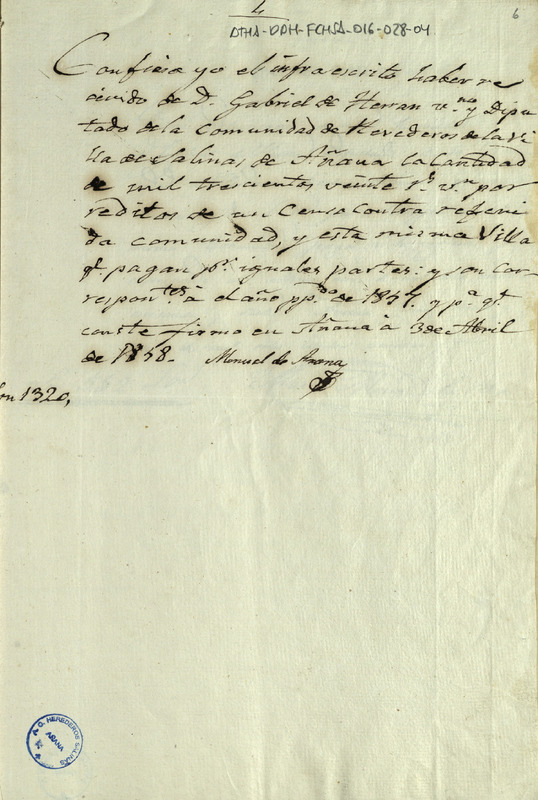 4
6
DTHA-DPH-FCHSA-016-028-04
Confieso yo el infraescrito haber re
civido de D. Gabriel de Herran v.no y Dipu
tado de la Comunidad de Herederos de la Vi
lla de Salinas de Añana la Cantidad
de mil trescientos veinte r.s v.n por
reditos de un Censo contra referi
da comunidad, y esta misma Villa
qe pagan pr. iguales partes: y son cor
respontes. á el año pp.do de 1857. y p.a qe
conste firmo en Añana á 3 de Abril
de 1858.  Manuel de Arana
Son 1320,
A. O. HEREDEROS SALINAS
AÑANA